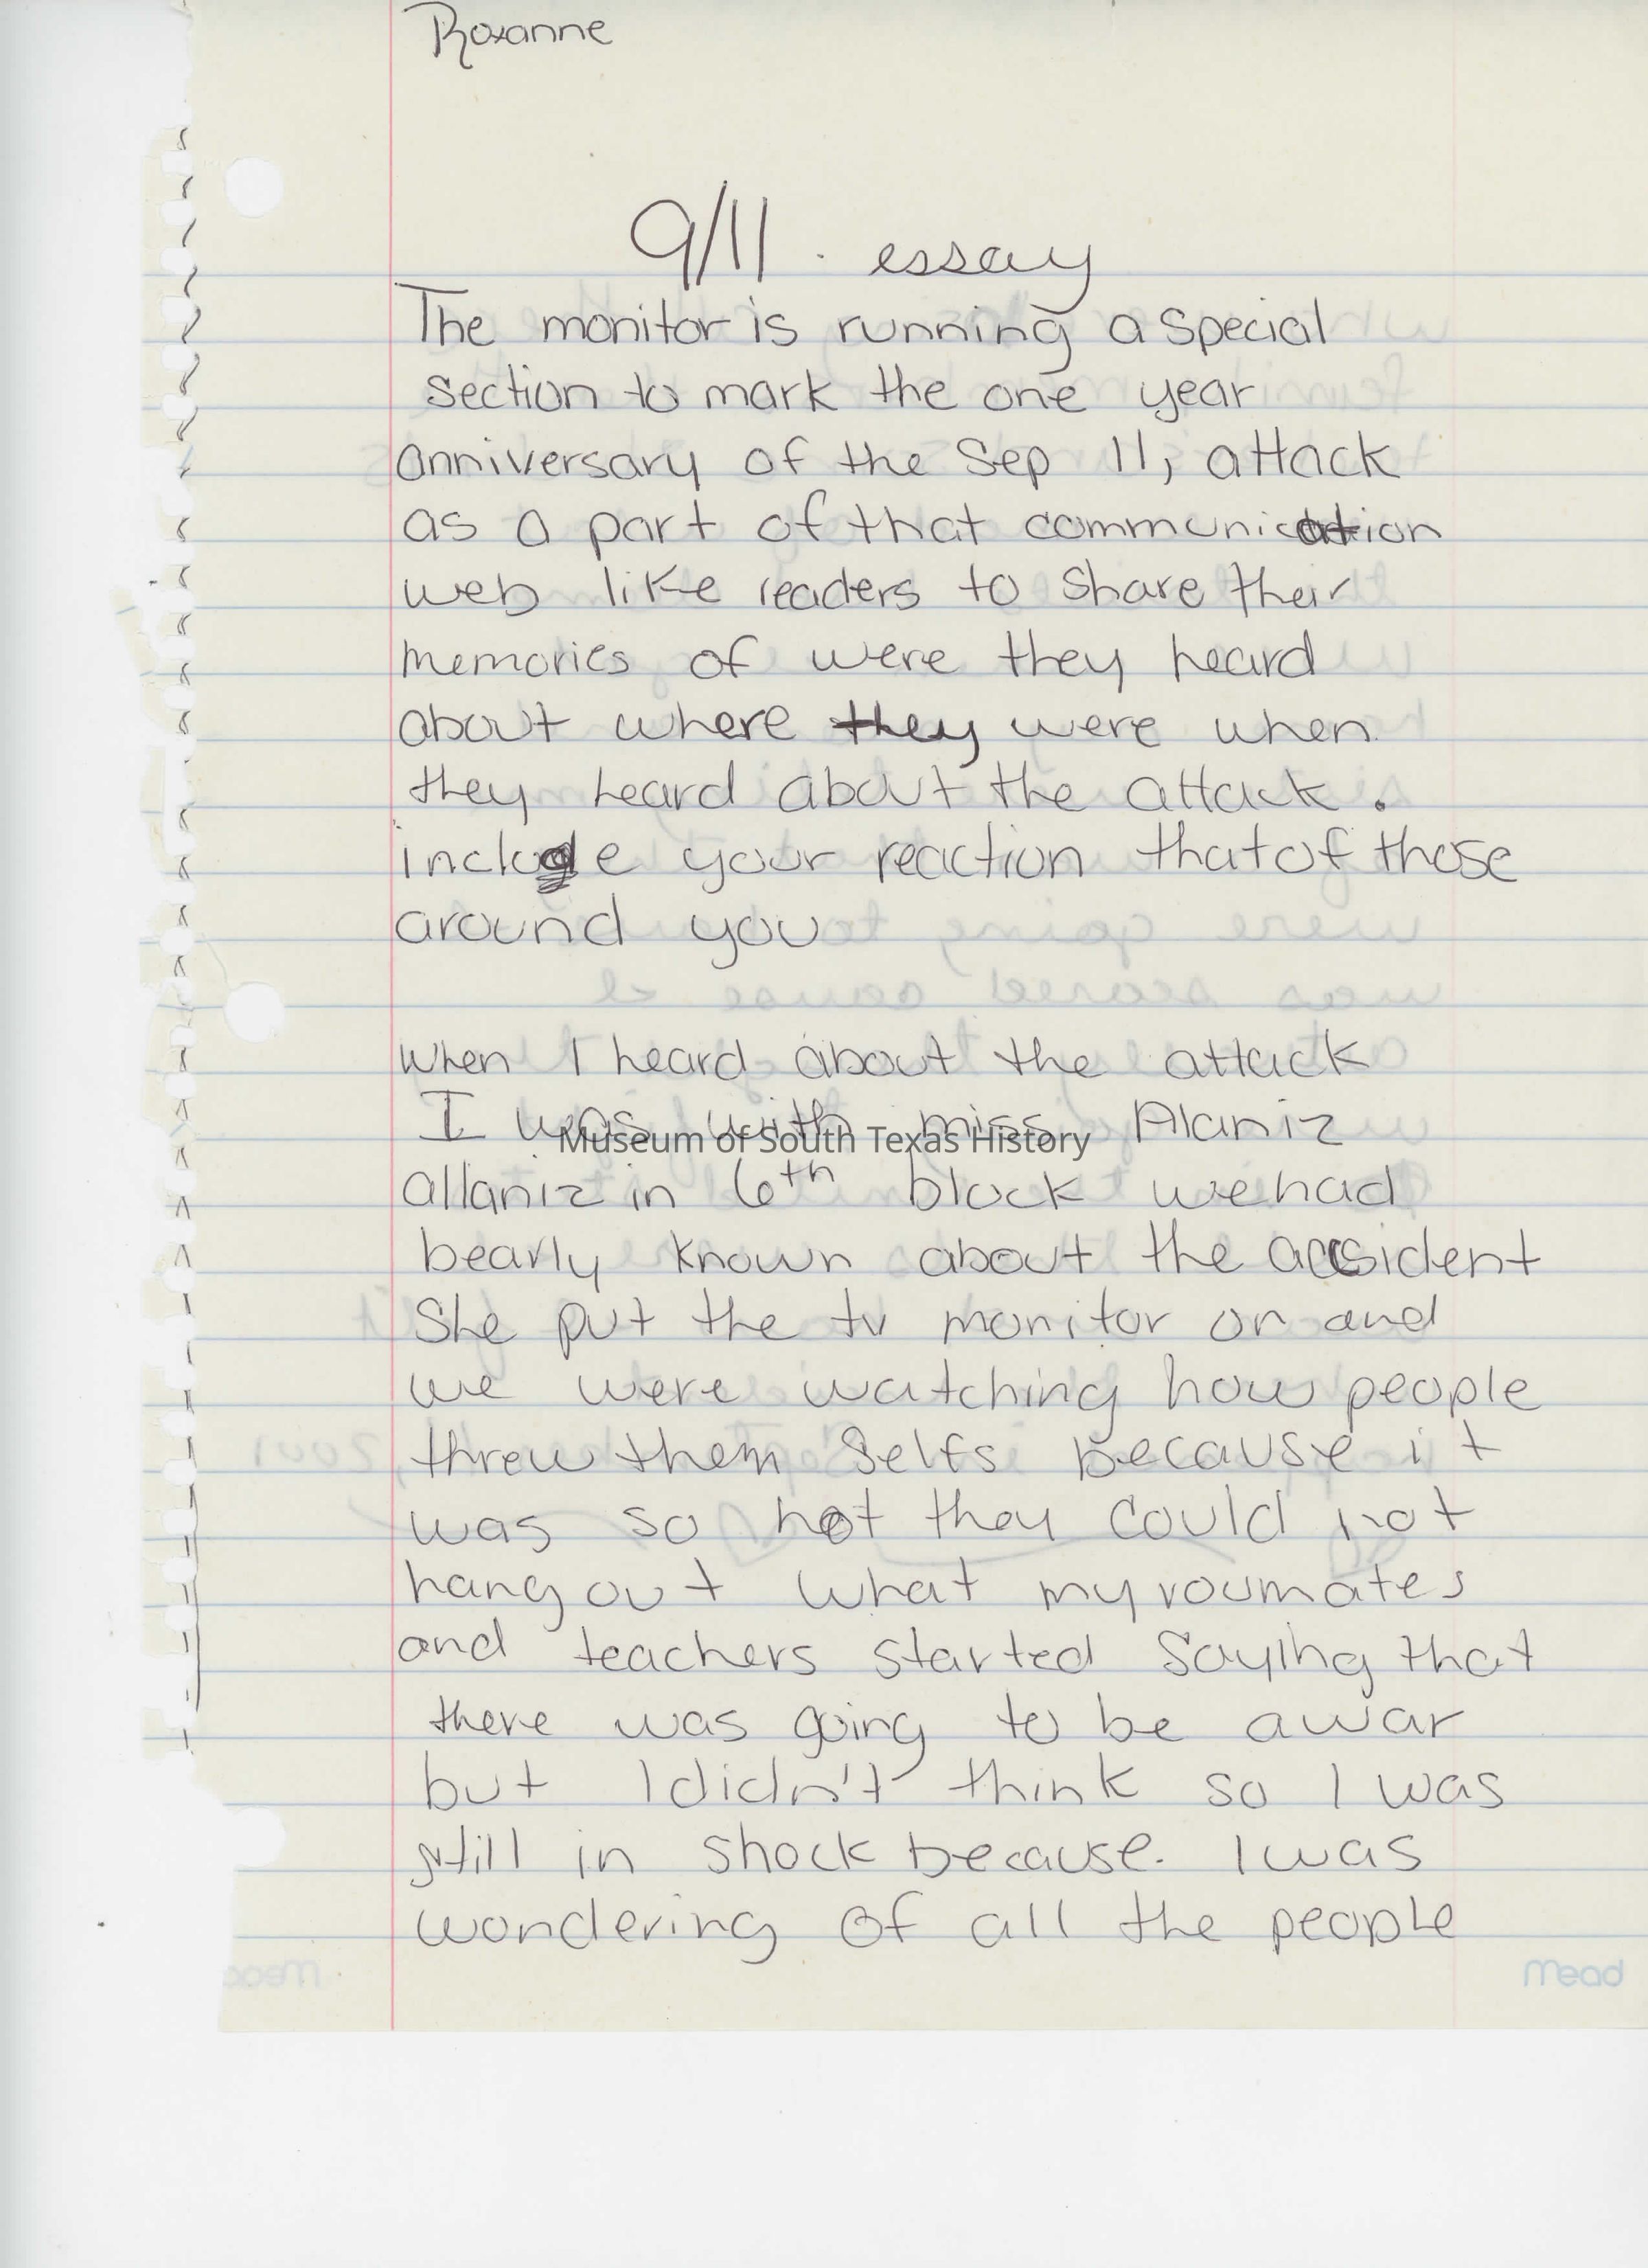 Roxanne
9/11 . essay
The monitor is running a special
section to mark the one year
anniversary of the Sep 11, attack
as a part of that communication
web like readers to share their
memories of were they heard
about where they were when
they heard about the attack.
include your reaction that of those
around you
when I heard about the attack
I was with miss Alaniz
Museum of South Texas History
allaniz in 6th block we had
bearly known about the accsident
She put the tv monitor on and
we were watching how people
threw them selfs because it
was so hot they could not
hang out what my roumates
and teachers started saying that
there was going to be awar
but I didn't think so I was
still in shock because. I was
wondering of all the people
Mead